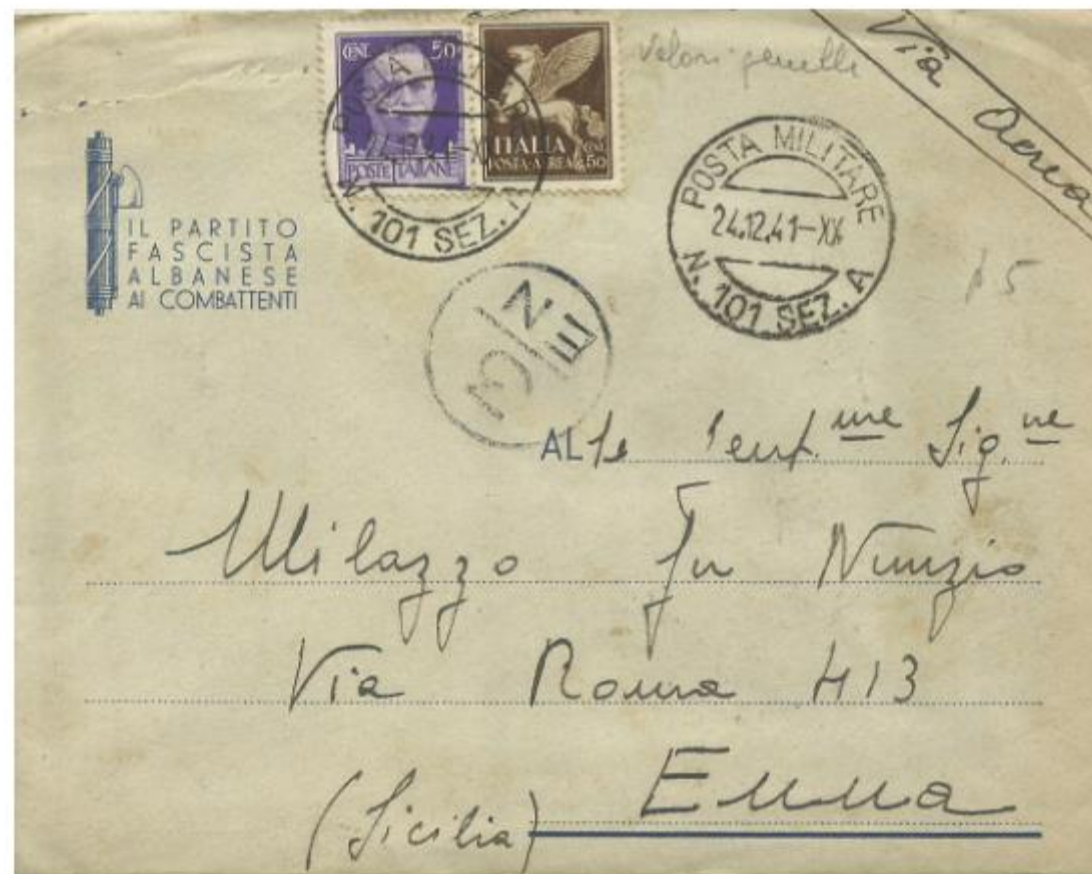 CENT. 50
POSTE ITALIANE
ITALIA
POSTA AEREA CENT. 50
N. 101 SEZ.
Valori gemelli
Via Aerea
POSTA MILITARE
24.12.41-XX
N. 101 SEZ. A
IL PARTITO
FASCISTA
ALBANESE
AI COMBATTENTI
15
AL le Gent.me Sig.ne
Milazzo fu Nunzio
Via Roma 413
Enna
(Sicilia)